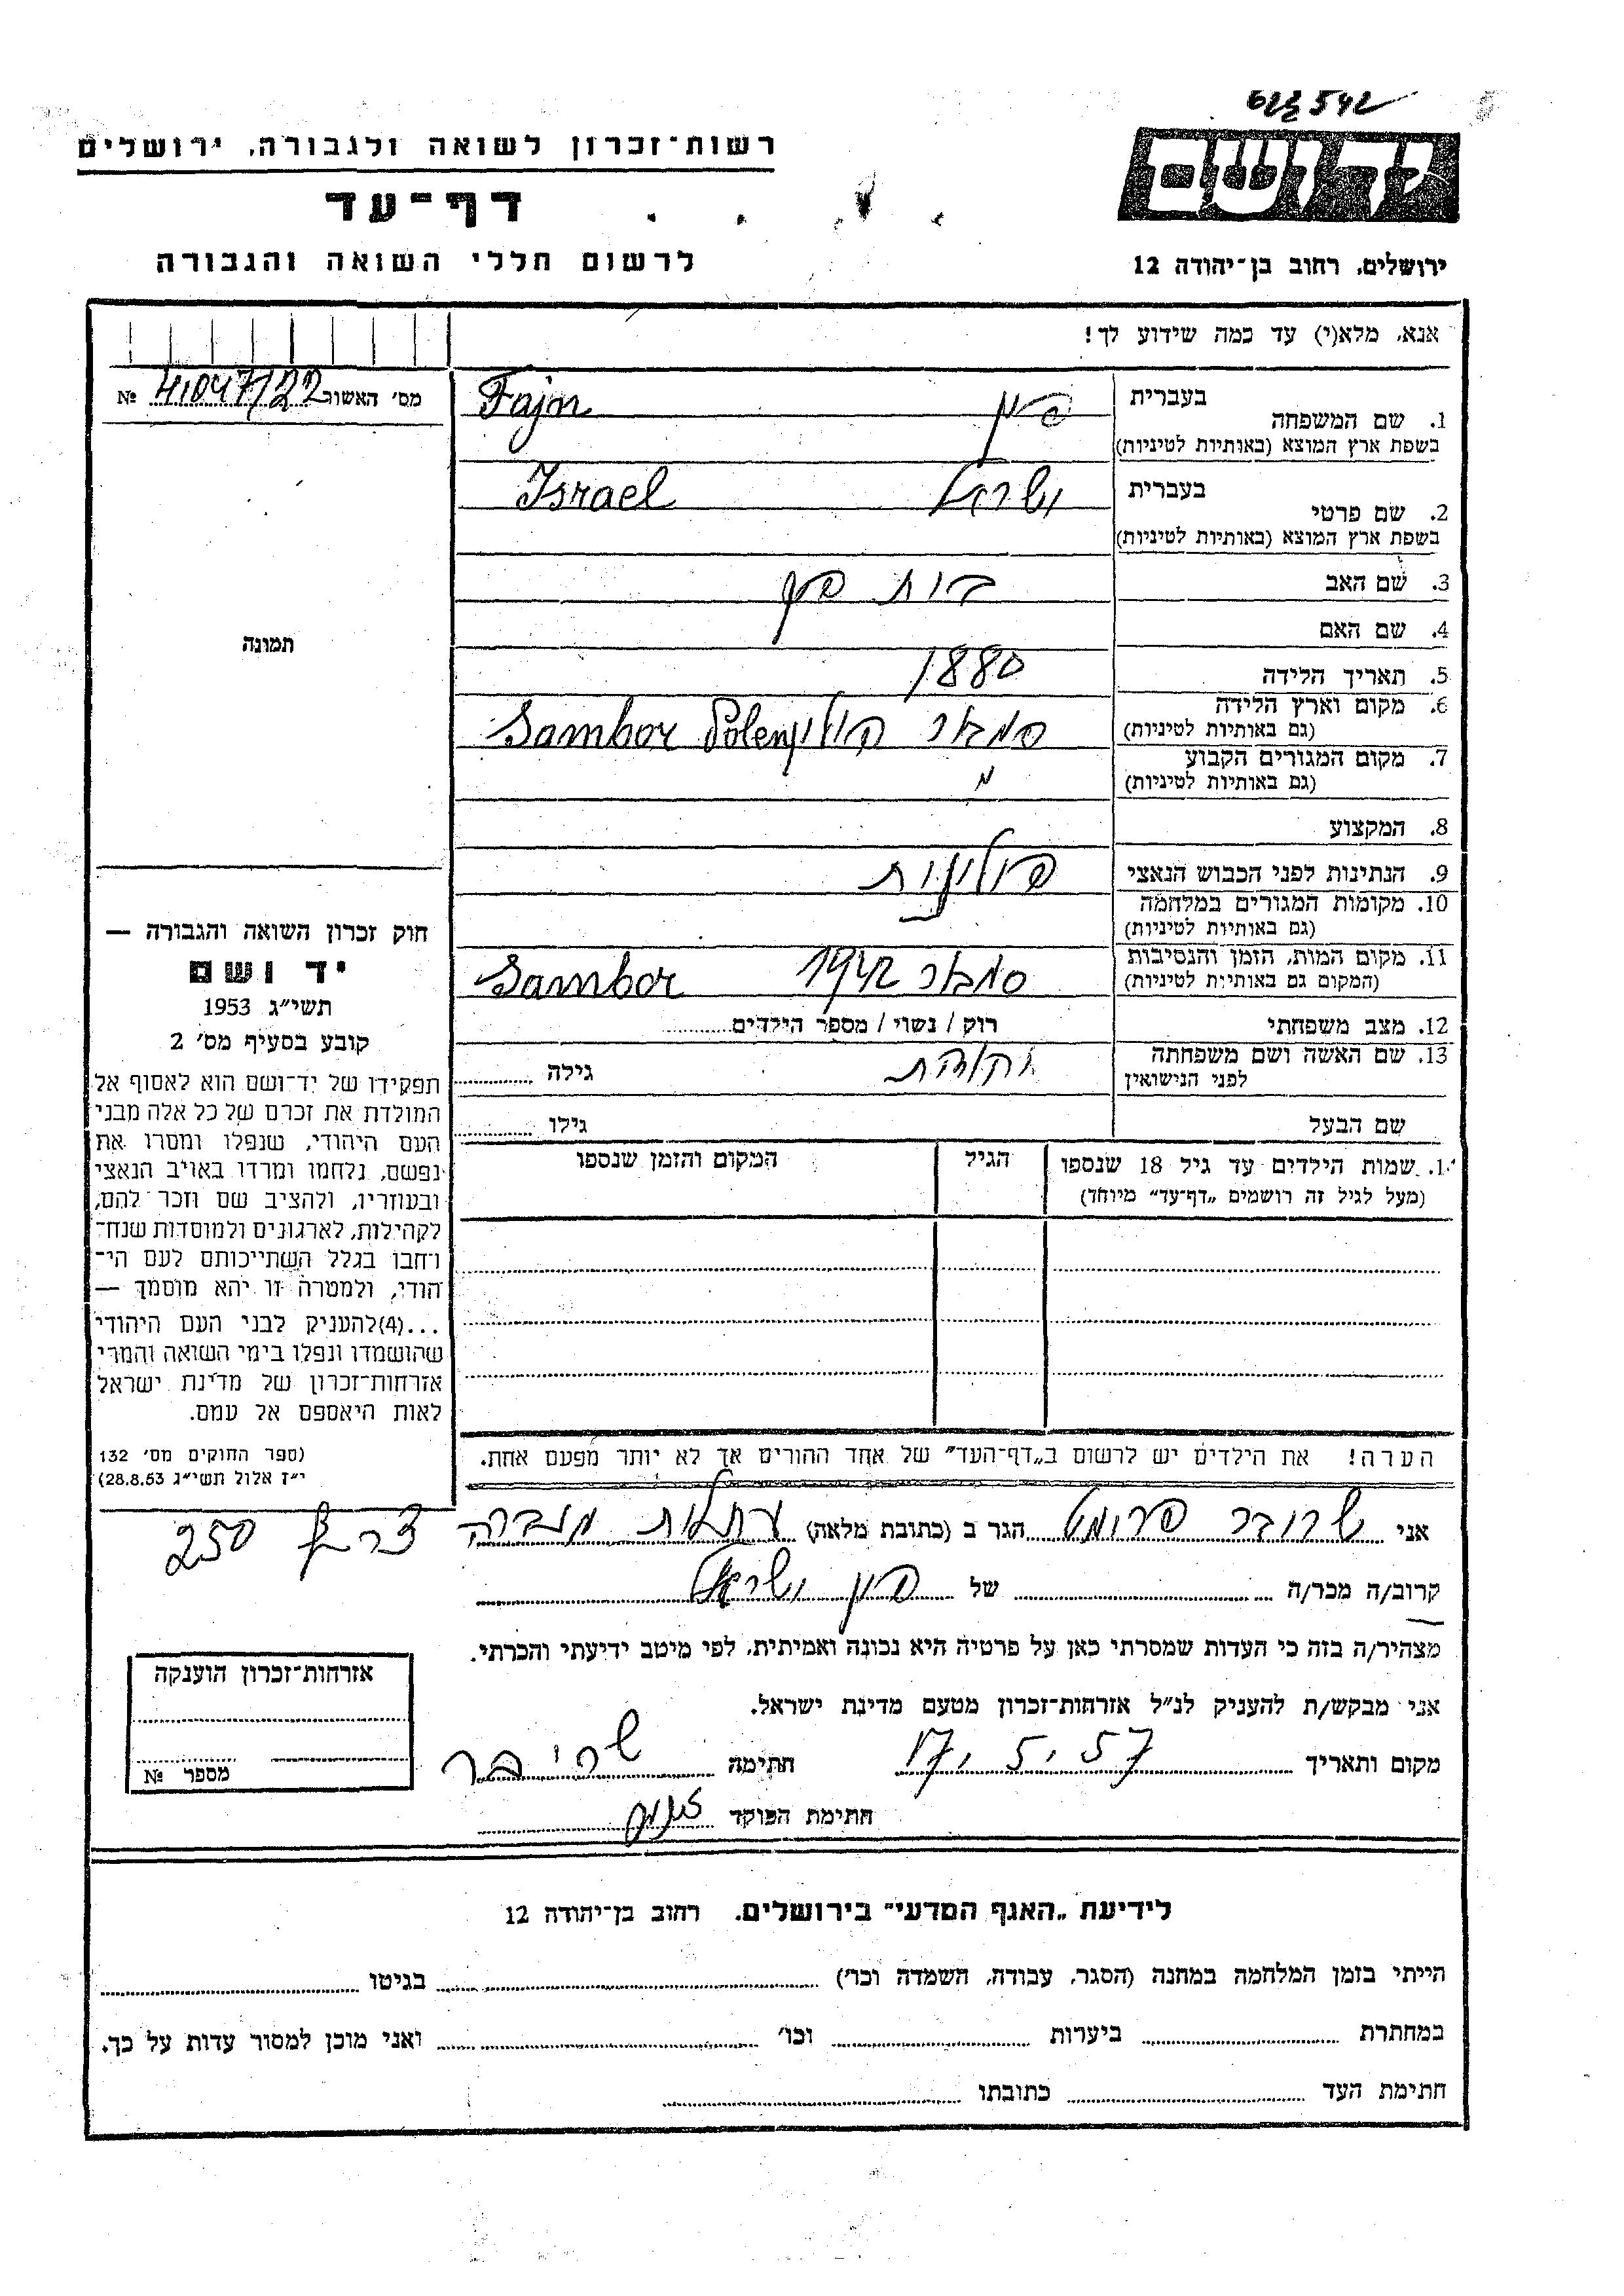 542
רשות־זכרון לשואה ולגבורה, ירושלים
יד ושם
דף־עד
לרשום חללי השואה והגבורה
ירושלים, רחוב בן־יהודה 12
אנא, מלא(י) עד כמה שידוע לך!
מס׳ האשור 41047/22 №
תמונה
1. שם המשפחה בעברית פיין Fajn
בשפת ארץ המוצא (באותיות לטיניות)
2. שם פרטי בעברית ישראל Israel
בשפת ארץ המוצא (באותיות לטיניות)
3. שם האב
4. שם האם
5. תאריך הלידה 1880
6. מקום וארץ הלידה סמבור פולין Sambor Polen
(גם באותיות לטיניות)
7. מקום המגורים הקבוע
(גם באותיות לטיניות)
8. המקצוע
9. הנתינות לפני הכבוש הנאצי פולנית
10. מקומות המגורים במלחמה
(גם באותיות לטיניות)
11. מקום המות, הזמן והנסיבות סמבור 1942 Sambor
(המקום גם באותיות לטיניות)
12. מצב משפחתי רוק / נשוי / מספר הילדים
13. שם האשה ושם משפחתה
לפני הנישואין גילה
שם הבעל גילו
1. שמות הילדים עד גיל 18 שנספו הגיל המקום והזמן שנספו
(מעל לגיל זה רושמים „דף־עד” מיוחד)
הערה! את הילדים יש לרשום ב„דף־העד” של אחד ההורים אך לא יותר מפעם אחת.
חוק זכרון השואה והגבורה —
יד ושם
תשי״ג 1953
קובע בסעיף מס׳ 2
תפקידו של יד־ושם הוא לאסוף אל
המולדת את זכרם של כל אלה מבני
העם היהודי, שנפלו ומסרו את
נפשם, נלחמו ומרדו באויב הנאצי
ובעוזריו, ולהציב שם וזכר להם,
לקהילות, לארגונים ולמוסדות שנח־
רחבו בגלל השתייכותם לעם הי־
הודי, ולמטרה זו יהא מוסמך —
...(4)להעניק לבני העם היהודי
שהושמדו ונפלו בימי השואה והמרי
אזרחות־זכרון של מדינת ישראל
לאות היאספם אל עמם.
(ספר החוקים מס׳ 132
י״ז אלול תשי״ג 28.8.53)
אני שרובר הגר ב (כתובת מלאה) עתלית מעברה צריף 250
קרוב/ה מכר/ה של פיין ישראל
מצהיר/ה בזה כי העדות שמסרתי כאן על פרטיה היא נכונה ואמיתית, לפי מיטב ידיעתי והכרתי.
אני מבקש/ת להעניק לנ״ל אזרחות־זכרון מטעם מדינת ישראל.
מקום ותאריך 17.5.57 חתימה
חתימת הפוקד
אזרחות־זכרון הוענקה
מספר №
לידיעת „האגף המדעי” בירושלים, רחוב בן־יהודה 12
הייתי בזמן המלחמה במחנה (הסגר, עבודה, השמדה וכו׳) בגיטו
במחתרת ביערות וכו׳ ואני מוכן למסור עדות על כך.
חתימת העד כתובתו